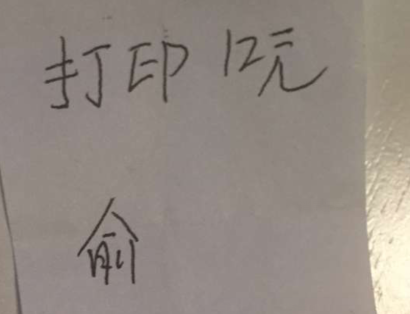 打印12元
俞